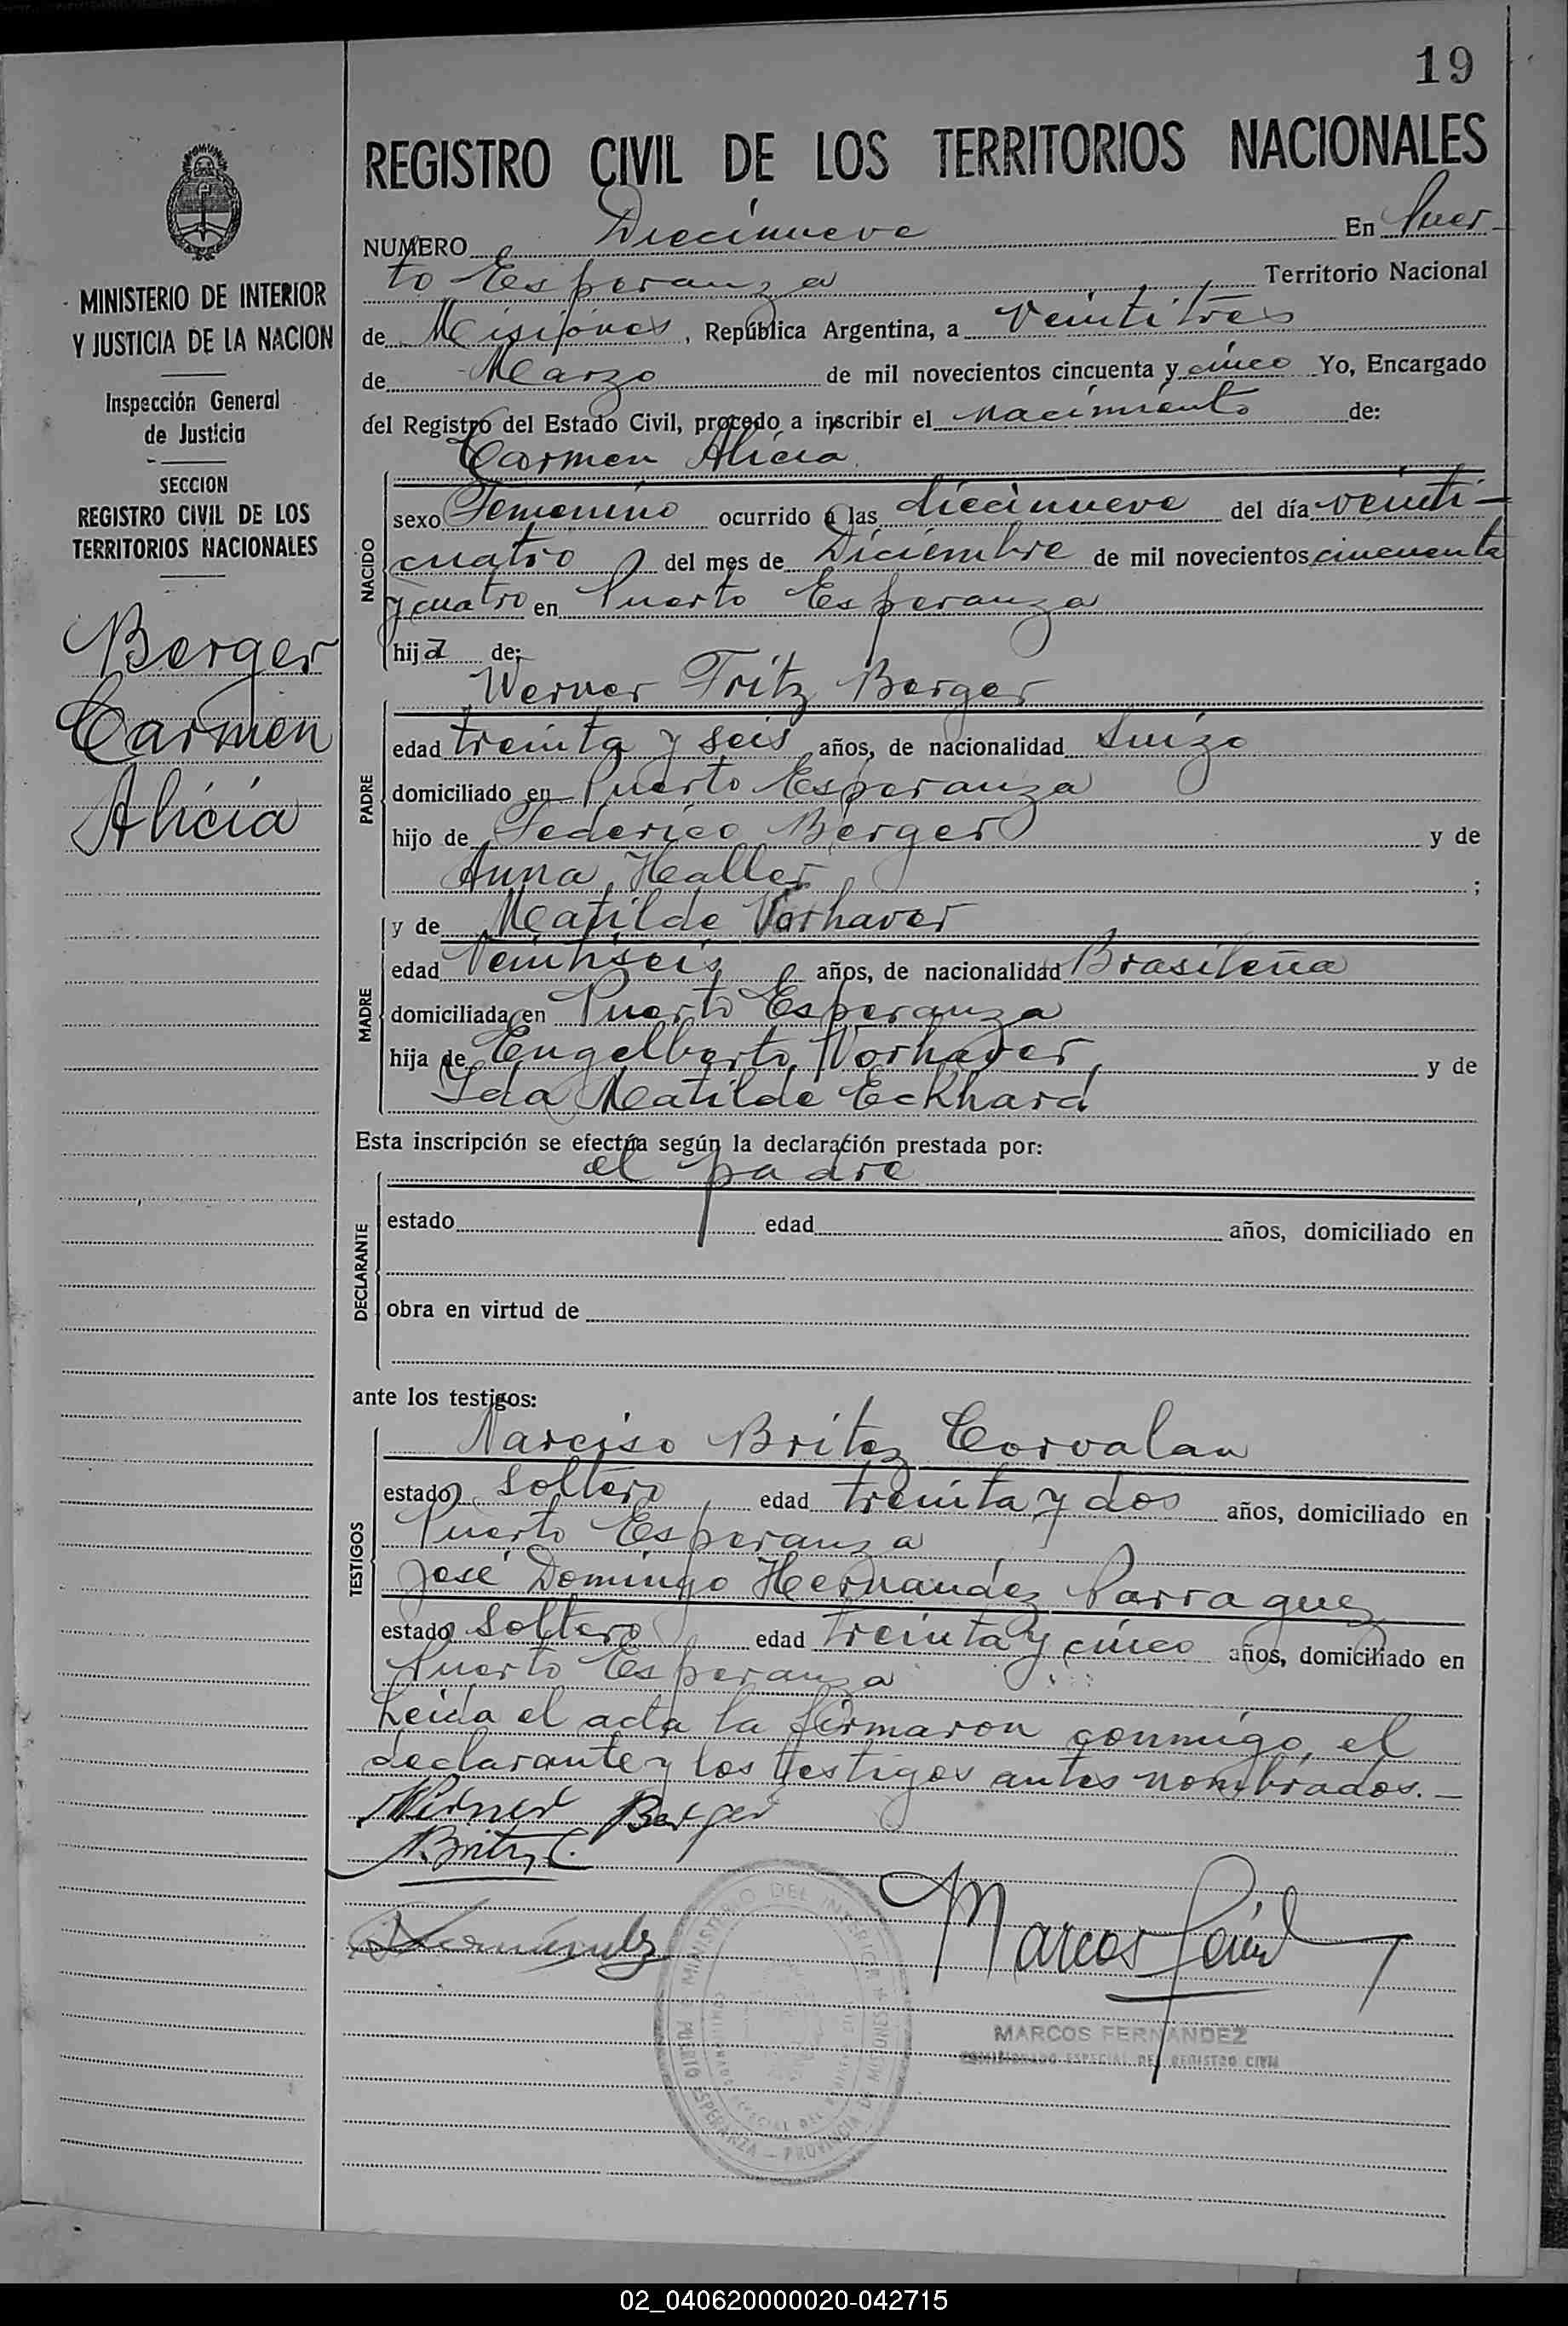 19
REGISTRO CIVIL DE LOS TERRITORIOS NACIONALES
MINISTERIO DE INTERIOR
Y JUSTICIA DE LA NACION
Inspección General
de Justicia
SECCION
REGISTRO CIVIL DE LOS
TERRITORIOS NACIONALES
Berger
Carmen
Alicia
NUMERO Diecinueve En Puer-
to Esperanza Territorio Nacional
de Misiones, República Argentina, a Veintitres
de Marzo de mil novecientos cincuenta y cinco Yo, Encargado
del Registro del Estado Civil, procedo a inscribir el nacimiento de:
Carmen Alicia
NACIDO
sexo Femenino ocurrido a las diecinueve del día veinti-
cuatro del mes de Diciembre de mil novecientos cincuenta
y cuatro en Puerto Esperanza
hija de:
Werner Fritz Berger
PADRE
edad treinta y seis años, de nacionalidad Suizo
domiciliado en Puerto Esperanza
hijo de Federico Berger y de
Anna Haller ;
y de Matilde Vorhaver
MADRE
edad Veintiseis años, de nacionalidad Brasileña
domiciliada en Puerto Esperanza
hija de Engelberto Vorhaver y de
Ida Matilde Eckhard
Esta inscripción se efectúa según la declaración prestada por:
el padre
DECLARANTE
estado edad años, domiciliado en
obra en virtud de
ante los testigos:
Narciso Britez Corvalan
TESTIGOS
estado soltero, edad treinta y dos años, domiciliado en
Puerto Esperanza
José Domingo Hernandez Parraguez
estado soltero edad treinta y cinco años, domiciliado en
Puerto Esperanza
Leida el acta la firmaron conmigo, el
declarante y los testigos antes nombrados.-
Werner Berger
N. Britez C.
Hernández
Marcos
MINISTERIO DEL INTERIOR
PUERTO ESPERANZA - PROVINCIA DE MISIONES
MARCOS FERNANDEZ
COMISIONADO ESPECIAL DEL REGISTRO CIVIL
02_040620000020-042715